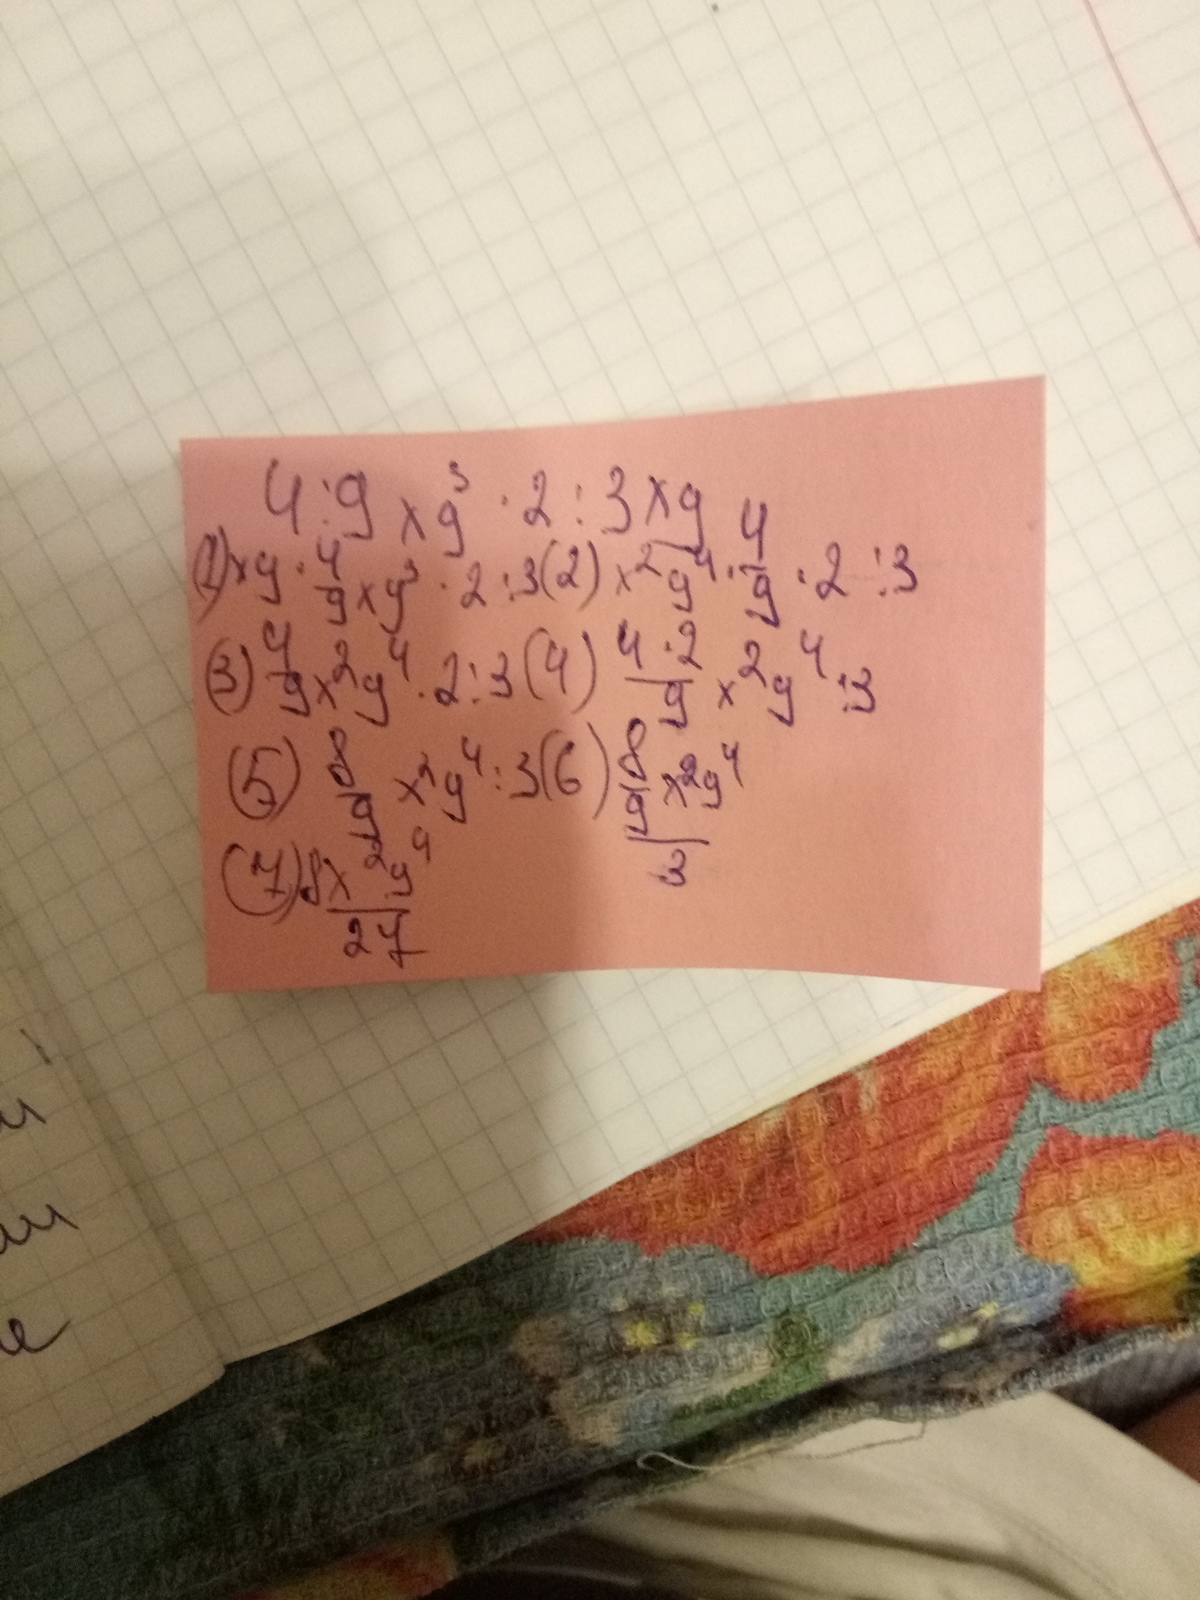 4:9xy³·2:3xy
(1)xy·4/9xy³·2:3(2)x²y⁴·4/9·2:3
(3)4/9x²y⁴·2:3(4)4·2/9x²y⁴:3
(5)8/9x²y⁴:3(6)8/9x²y⁴/3
(7)8x²y⁴/27